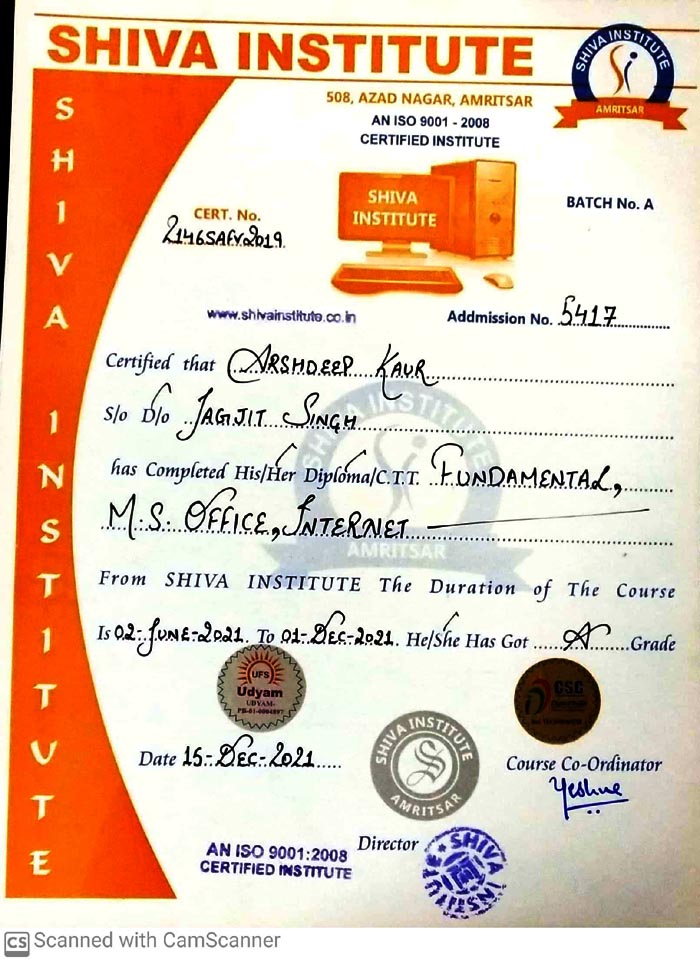 SHIVA INSTITUTE
SHIVA INSTITUTE
AMRITSAR
508, AZAD NAGAR, AMRITSAR
AN ISO 9001 - 2008
CERTIFIED INSTITUTE
SHIVA INSTITUTE
SHIVA
INSTITUTE
BATCH No. A
CERT. No.
2146SAFV2019.
www.shivainstitute.co.in
Addmission No. 5417
Certified that ARSHDEEP KAUR
S/o D/o JAGJIT SINGH
has Completed His/Her Diploma/C.T.T. FUNDAMENTAL,
M.S. OFFICE, INTERNET
SHIVA INSTITUTE
AMRITSAR
From SHIVA INSTITUTE The Duration of The Course
Is 02-JUNE-2021. To 01-DEC-2021. He/She Has Got A Grade
UFS
Udyam
UDYAM-
CSC
Date 15-DEC-2021
SHIVA INSTITUTE
AMRITSAR
Course Co-Ordinator
Director
SHIVA
INSTITUTE
AN ISO 9001:2008
CERTIFIED INSTITUTE
CS Scanned with CamScanner